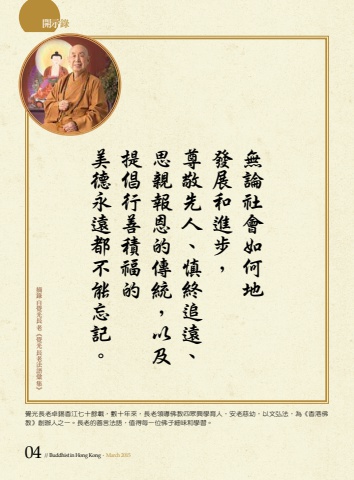 開示錄
無論社會如何地
發展和進步，
尊敬先人、慎終追遠、
思親報恩的傳統，以及
提倡行善積福的
美德永遠都不能忘記。
摘錄自覺光長老《覺光長老法語彙集》
覺光長老卓錫香江七十餘載，數十年來，長老領導佛教四眾興學育人，安老慈幼，以文弘法，為《香港佛
教》創辦人之一。長老的善言法語，值得每一位佛子細味和學習。
04 // Buddhist in Hong Kong · March 2015